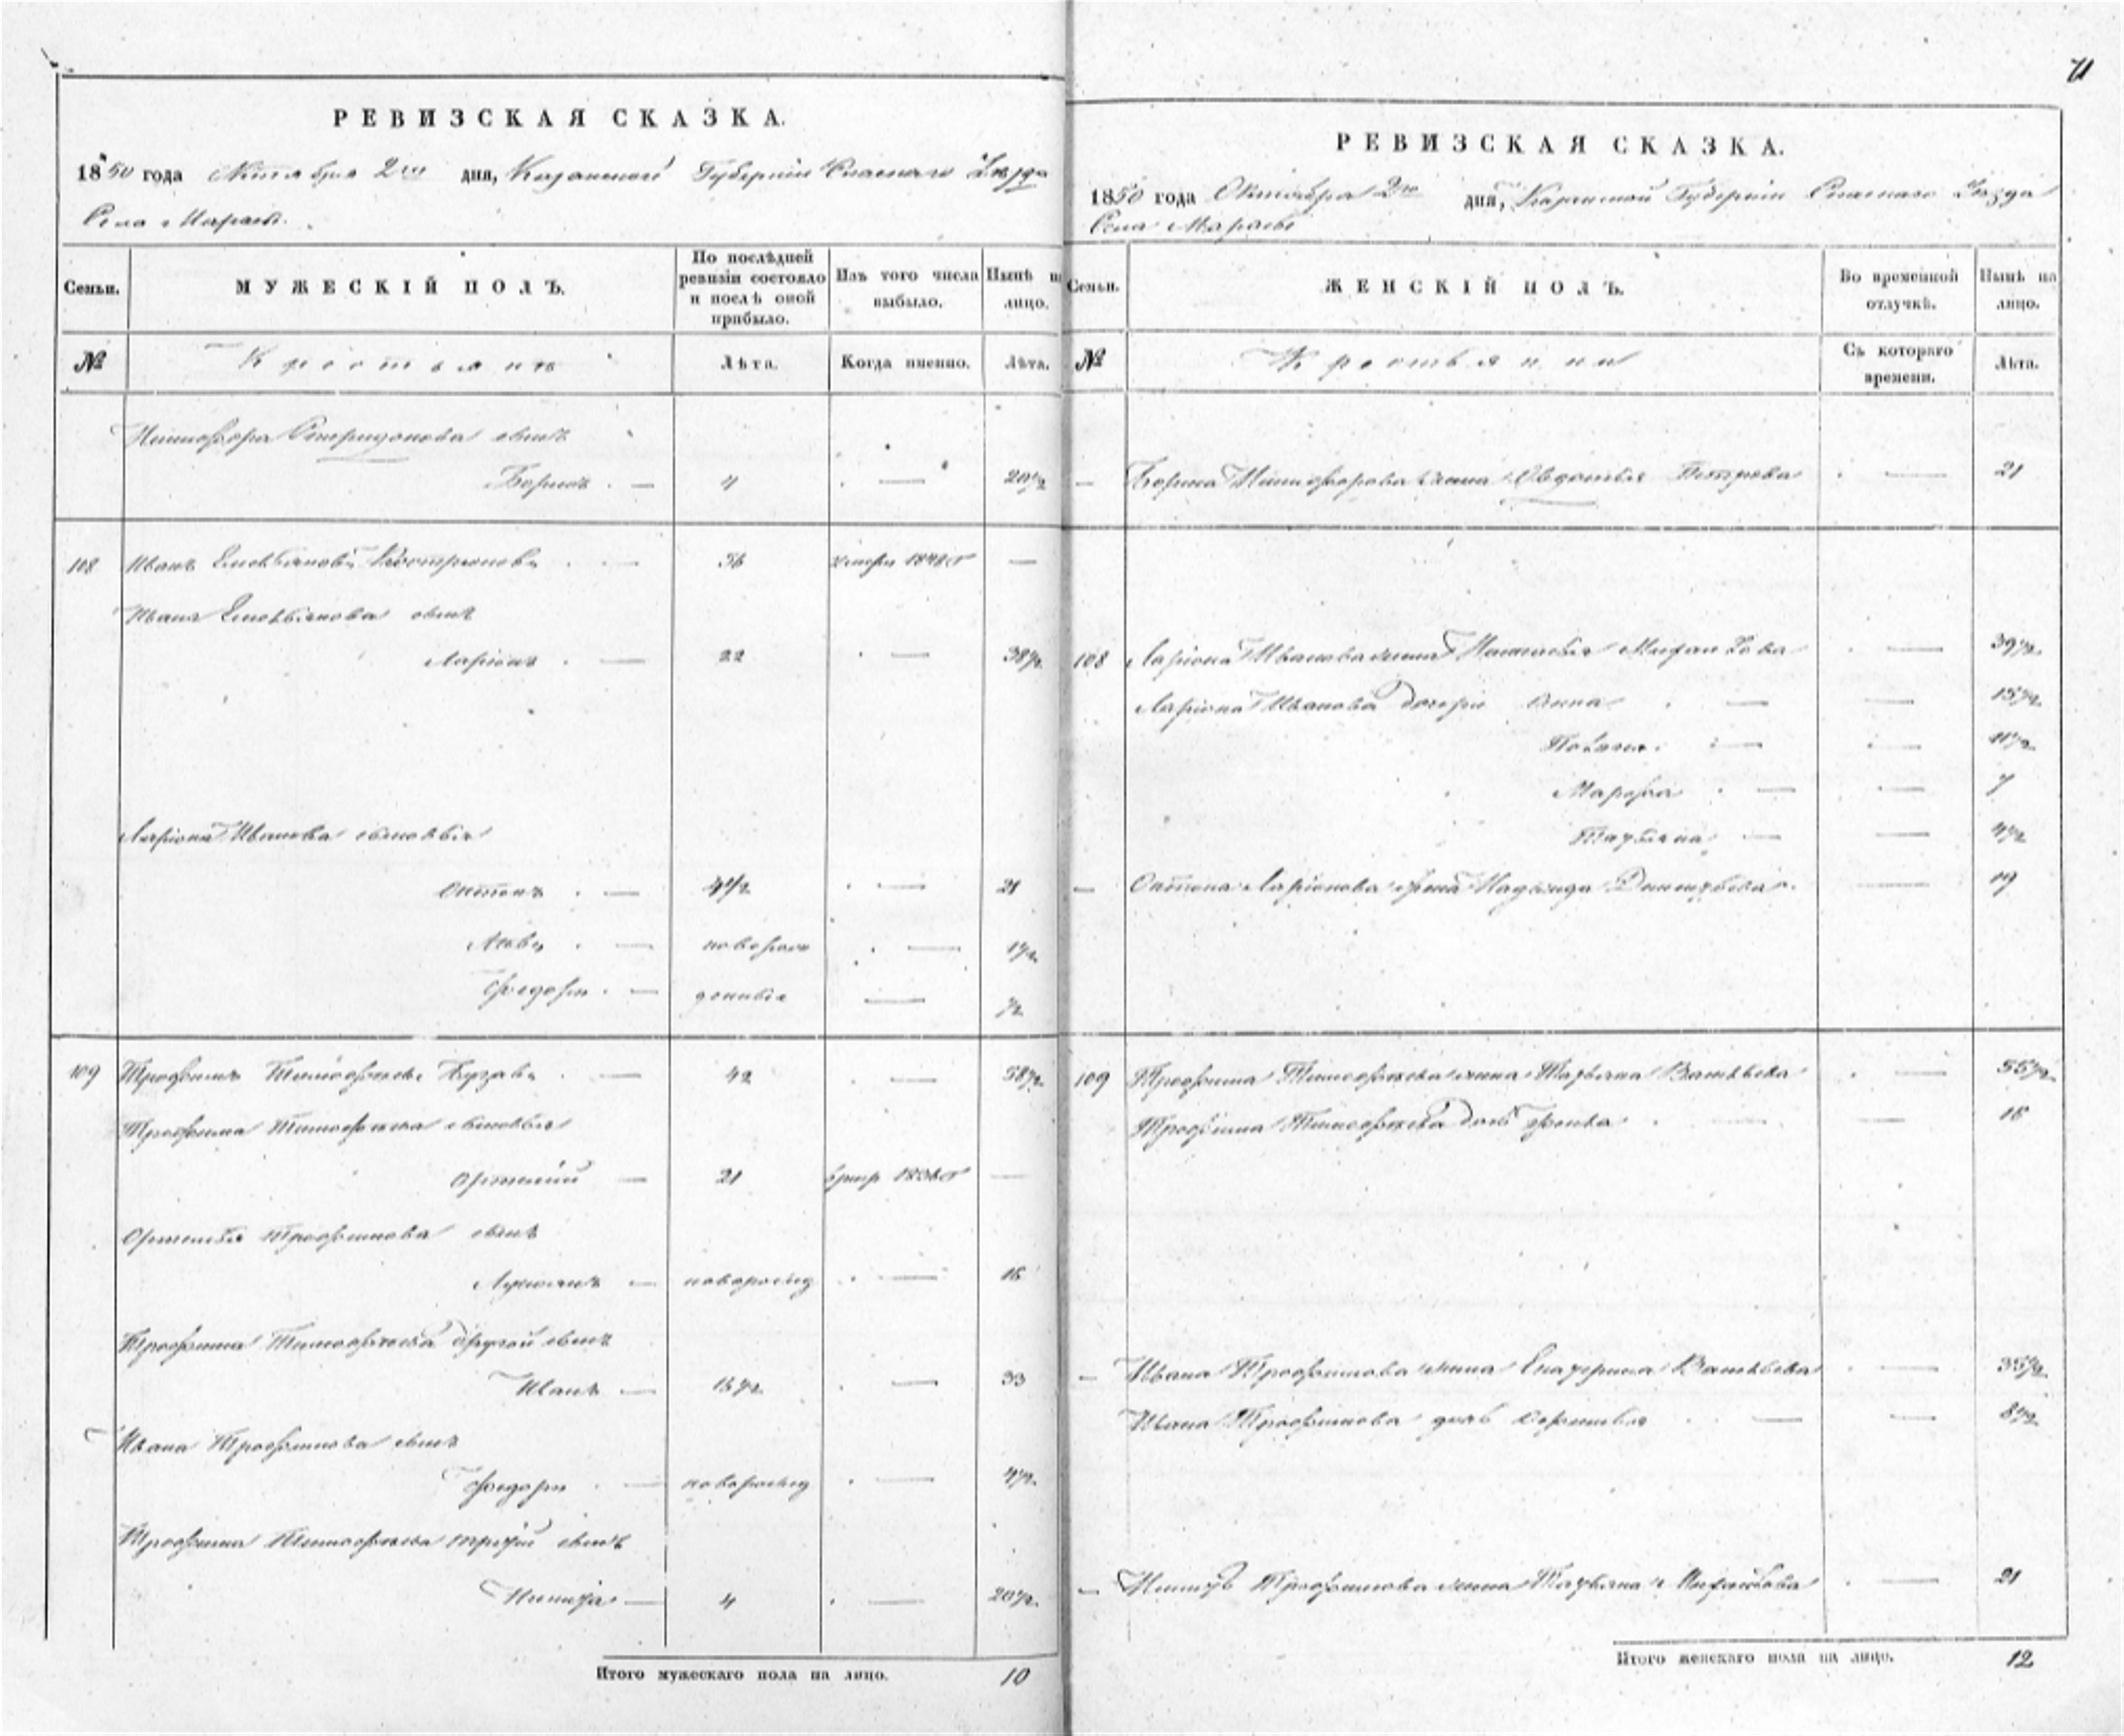 РЕВИЗСКАЯ СКАЗКА.
1850 года Октября 2го дня, Казанской Губернiи Спаскаго Уѣзда
Села Марасы.
Семьи.
МУЖЕСКIЙ ПОЛЪ.
По послѣдней ревизiи состояло и послѣ оной прибыло.
Изъ того числа выбыло.
Нынѣ на лицо.
№
Крестьянъ
Лѣта.
Когда именно.
Лѣта.
Никифора Спиридонова сынъ
Борисъ 4 — 20½
108 Иванъ Емельяновъ 56 умеръ —
Ивана Емельянова сынъ
Ларiонъ 22 — 38½
Ларiона Иванова сыновья
Антонъ 4½ — 21
Левъ новорож — 1½
Федоръ денныя — ½
109 Трофимъ Тимофѣевъ 42 — 58½
Трофима Тимофѣева сыновья
Артемiй 21 —
Артемья Трофимова сынъ
Лукьянъ новорожд — 16
Трофима Тимофѣева другой сынъ
Иванъ 16½ — 33
Ивана Трофимова сынъ
Федоръ новорожд — 4½
Трофима Тимофѣева третiй сынъ
Никита — 4 — 20½
Итого мужескаго пола на лицо. 10
71
РЕВИЗСКАЯ СКАЗКА.
1850 года Октября 2го дня, Казанской Губернiи Спаскаго Уѣзда
Села Марасы
Семьи.
ЖЕНСКIЙ ПОЛЪ.
Во временной отлучкѣ.
Нынѣ на лицо.
№
Крестьянки
Съ котораго времени.
Лѣта.
— Бориса Никифорова жена Авдотья Петрова — 21
108 Ларiона Иванова жена Настасья — 39½
Ларiона Иванова дочери Анна — — 15½
Пелагея — — 11½
Марфа — — 7
Татьяна — — 4½
— Антона Ларiонова жена Надежда — 19
109 Трофима Тимофѣева жена Татьяна Васильева — 55½
Трофима Тимофѣева дочь Фекла — 16
— Ивана Трофимова жена Екатерина Васильева — 35½
Ивана Трофимова дочь — — 8½
— Никиты Трофимова жена Татьяна — 21
Итого женскаго пола на лицо. 12